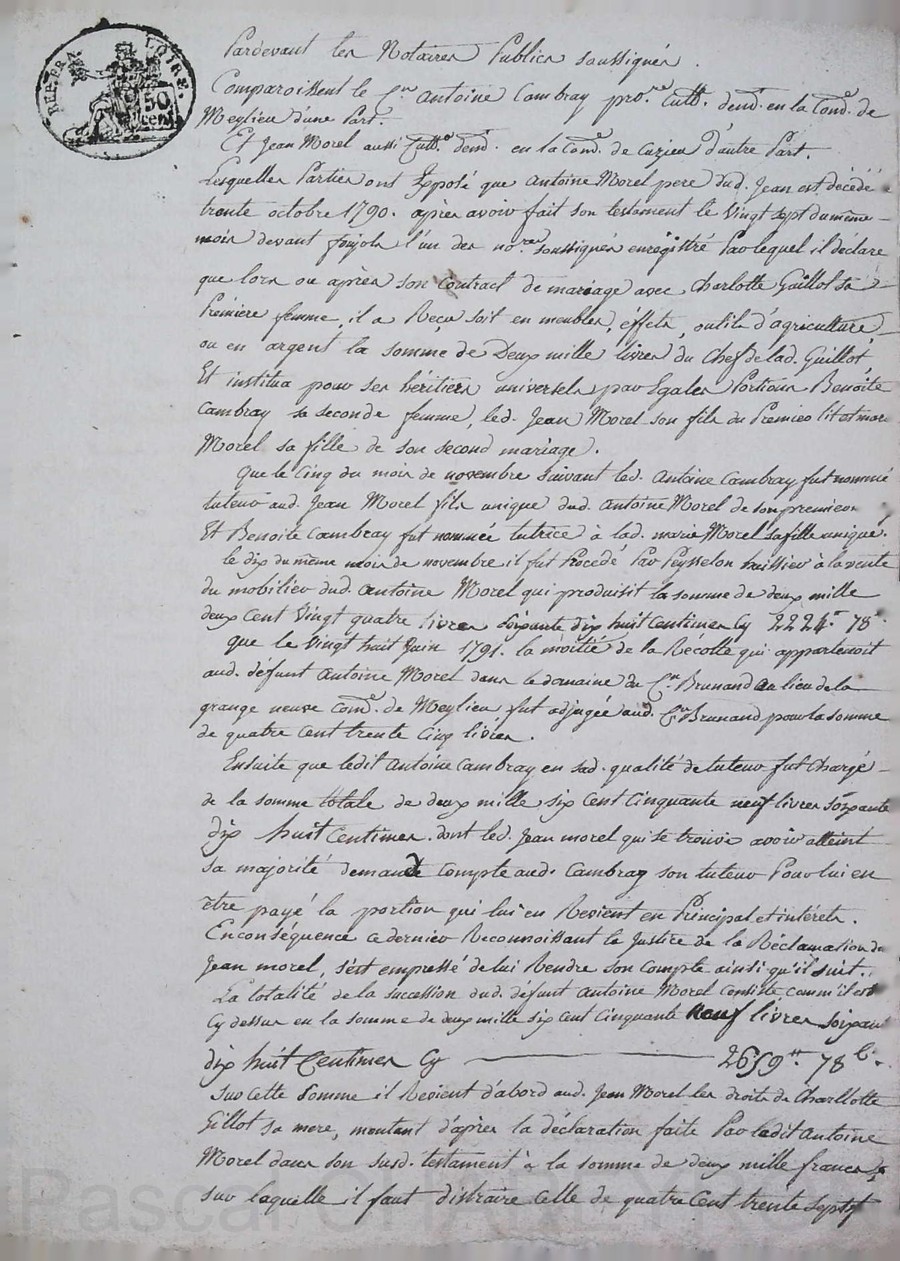 REP. FRA.
LOIRE.
50
cen.
Pardevant les Notaires Publics soussignés.
Comparoissent le C.en Antoine Cambray pro.re Cult.r dem.t en la Com.e de
Meylieu d'une Part.
Et Jean Morel aussi Cult.r dem.t en la Com.e de Cuzieu d'autre Part.
Lesquelles Parties ont Exposé que Antoine Morel pere dud. Jean est décédé
trente octobre 1790. après avoir fait son testament le Vingt sept du même
mois devant foujols l'un des no.res soussignés enregistré Par lequel il déclare
que lors ou après son Contract de mariage avec Charlotte Guillot sa
Première femme, il a Reçu soit en meubles, éffets, outils d'agriculture,
ou en argent la somme de Deux mille livres du Chef de lad. Guillot,
Et institua pour ses héritiers universels par Egales Portions Benoîte
Cambray sa seconde femme, led. Jean Morel son fils du Premier lit et mar
Morel sa fille de son second mariage.
que le Cinq du mois de novembre suivant led. Antoine Cambray fut nommé
tuteur aud. Jean Morel fils unique dud. Antoine Morel de son premier
Et Benoite Cambray fut nommée tutrice à lad. marie Morel sa fille unique.
le dix du même mois de novembre il fut Procédé Par Peysselon huissier à la vente
du mobilier dud. Antoine Morel qui produisit la somme de deux mille
deux Cent Vingt quatre livres soixante dix huit Centimes Cy 2224.# 78.c
que le Vingt huit Juin 1791. la moitié de la Récolte qui appartenoit
aud. défunt Antoine Morel dans le domaine du C.en Brunand au lieu de la
grange neuve Com.e de Meylieu fut adjugée aud. C.en Brunand pour la somme
de quatre Cent trente Cinq livres.
Ensuite que ledit Antoine Cambray en sad. qualité de tuteur fut Chargé
de la somme totale de deux mille six Cent Cinquante neuf livres soixante
dix huit Centimes. dont led. Jean morel qui se trouve avoir atteint
sa majorité demande Compte aud. Cambray son tuteur Pour lui en
être payé la portion qui lui en Revient en Principal et intérêts.
En conséquence ce dernier Reconnoissant la Justice de la Réclamation de
Jean morel, s'est empressé de lui Rendre son Compte ainsi qu'il suit.
La totalité de la succession dud. défunt Antoine Morel Consiste comm'il est
Cy dessus en la somme de deux mille six Cent Cinquante neuf livres soixan
dix huit Centimes Cy 2659.# 78.c
Sur cette Somme il Revient d'abord aud. Jean Morel les droits de Charllotte
Gillot sa mere, montant d'après la déclaration faite Par ledit Antoine
Morel dans son susd. testament à la somme de deux mille francs
sur laquelle il faut distraire Celle de quatre Cent trente sept